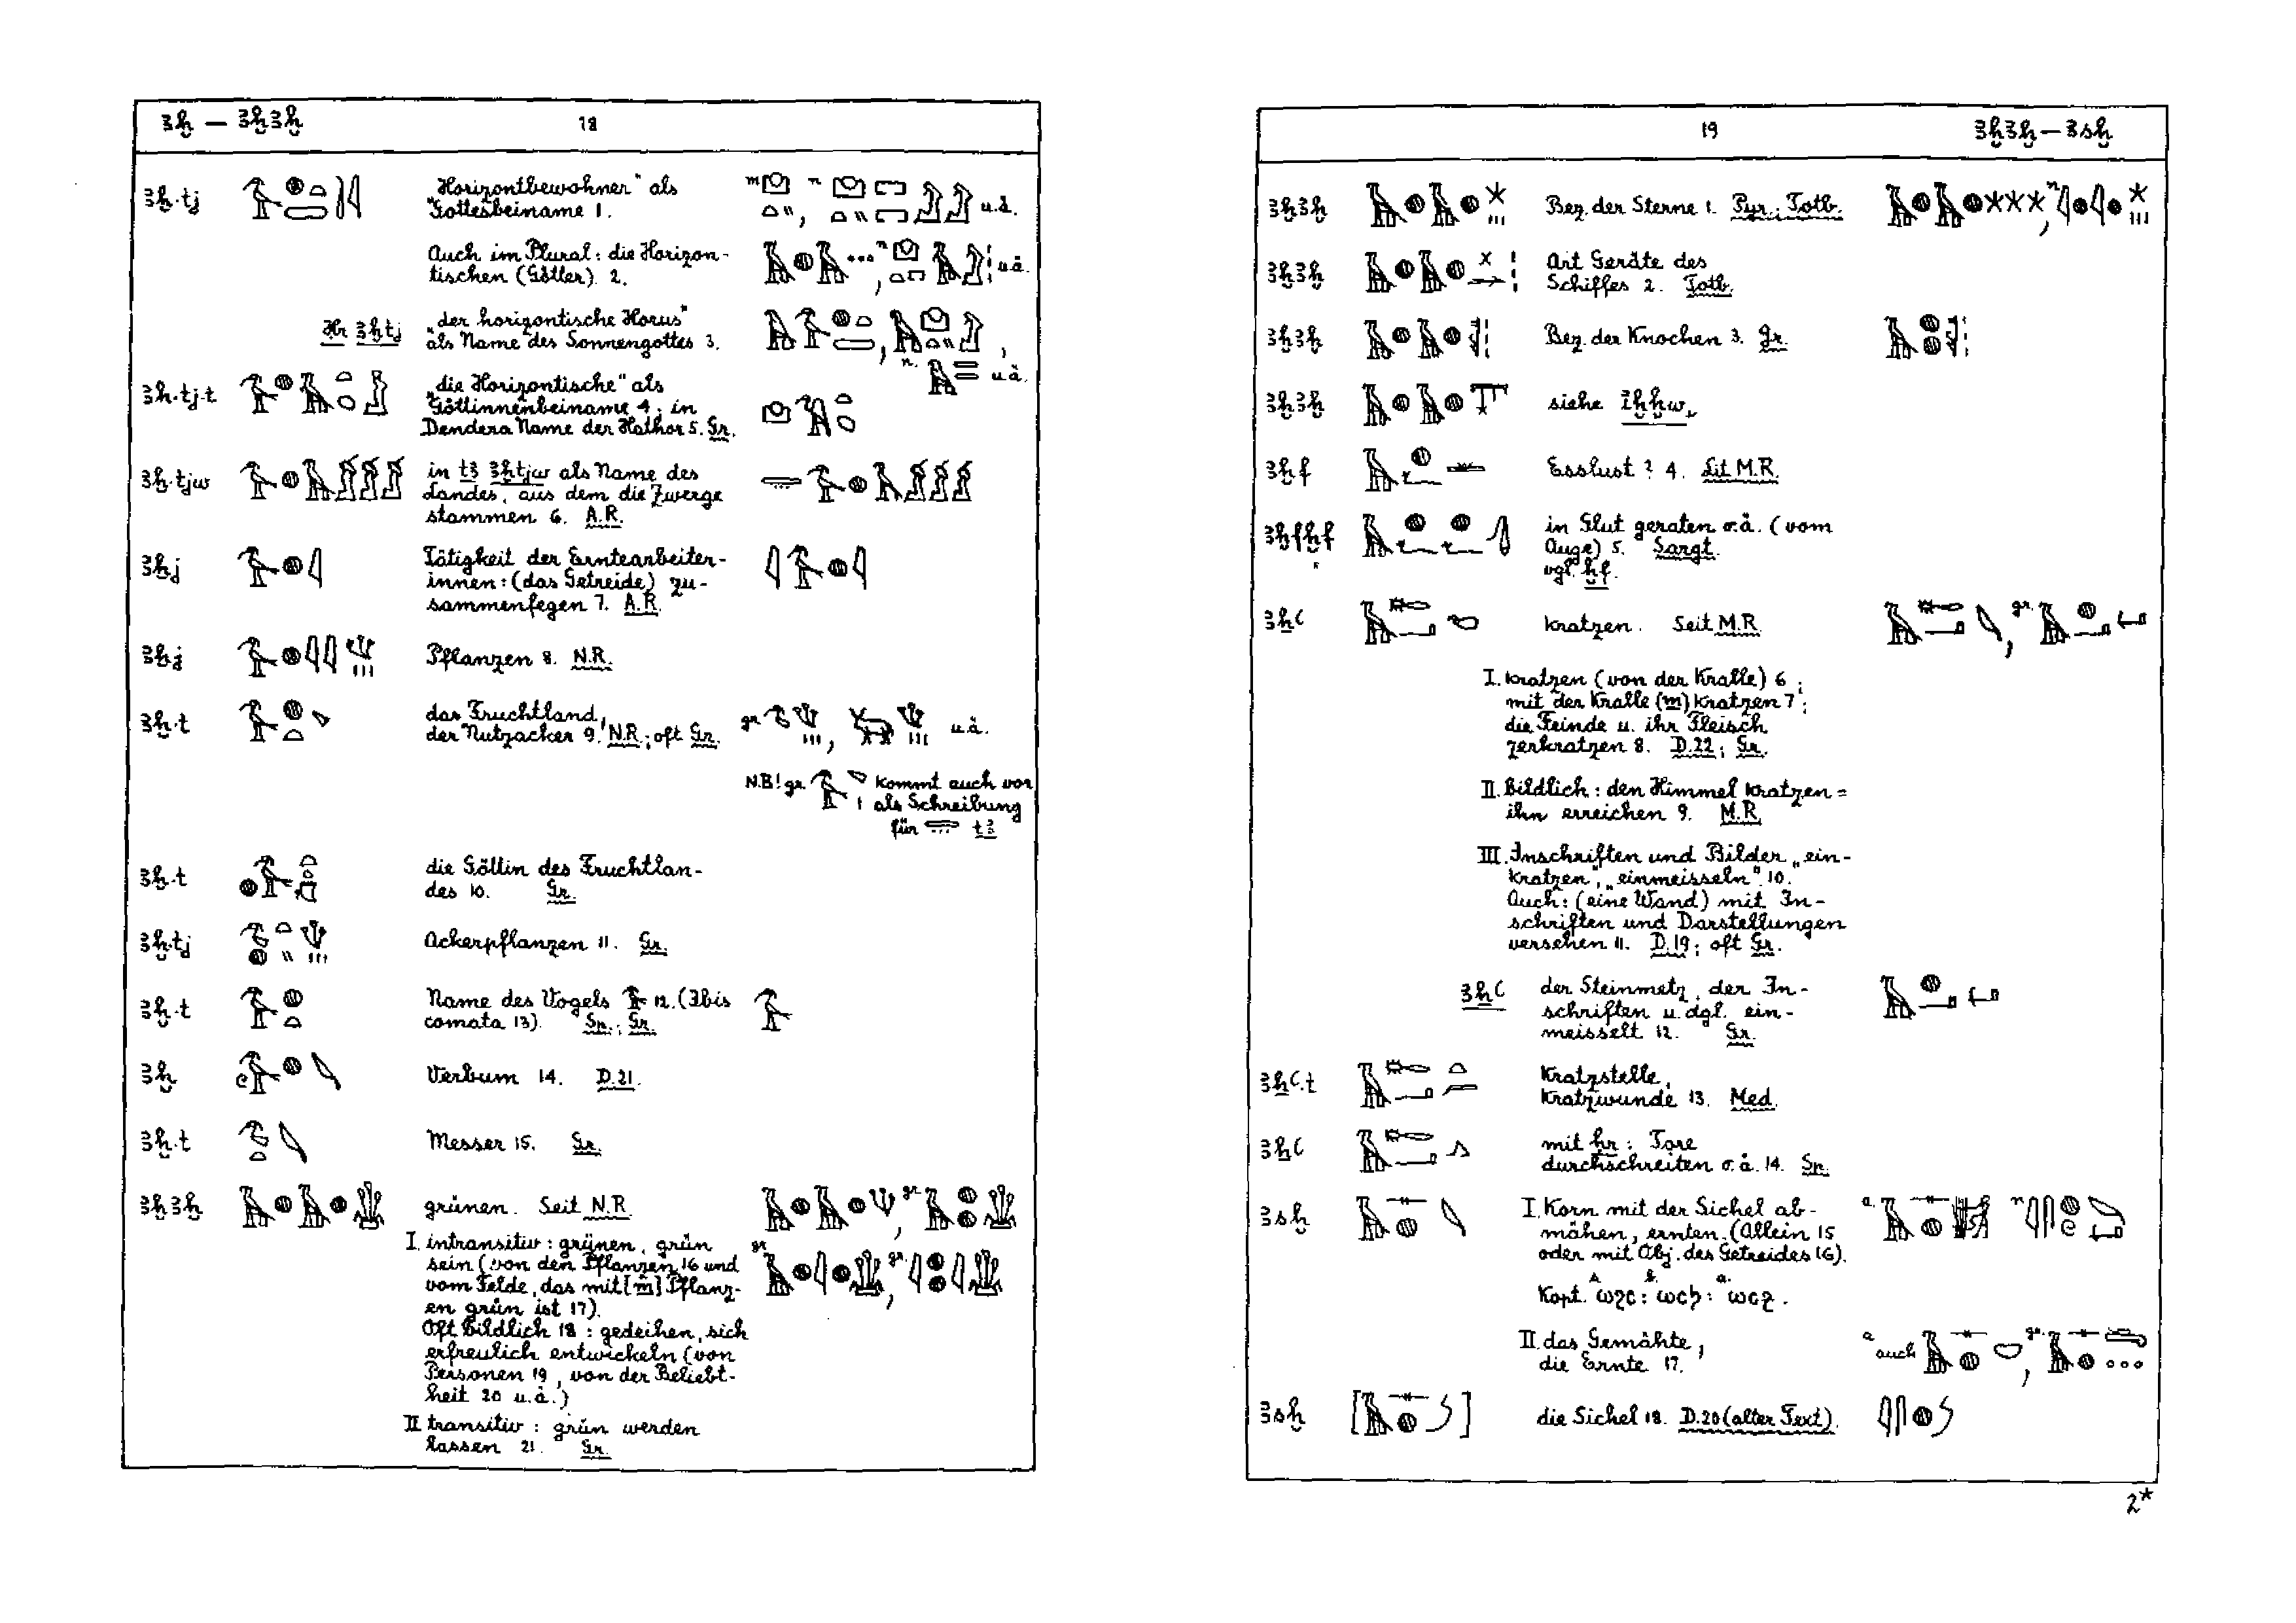 ꜣḫ — ꜣḫꜣḫ 18
ꜣḫ·tj „Horizontbewohner" als
Gottesbeiname 1. u.ä.
Auch im Plural: die Horizon-
tischen (Götter) 2. u.ä.
Ḥr ꜣḫtj „der horizontische Horus"
als Name des Sonnengottes 3. u.ä.
ꜣḫ·tj·t „die Horizontische" als
Göttinnenbeiname 4; in
Dendera Name der Hathor 5. Gr.
ꜣḫ·tjw in tꜣ ꜣḫtjw als Name des
Landes, aus dem die Zwerge
stammen 6. A.R.
ꜣḫj Tätigkeit der Erntearbeiter-
innen: (das Getreide) zu-
sammenfegen 7. A.R.
ꜣḫj Pflanzen 8. N.R.
ꜣḫ·t das Fruchtland,
der Nutzacker 9. N.R.; oft Gr. u.ä.
N.B! gr. kommt auch vor
als Schreibung
für tꜣ
ꜣḫ·t die Göttin des Fruchtlan-
des 10. Gr.
ꜣḫ·tj Ackerpflanzen 11. Gr.
ꜣḫ·t Name des Vogels 12. (Ibis
comata 13). Sp.; Gr.
ꜣḫ Verbum 14. D.21.
ꜣḫ·t Messer 15. Gr.
ꜣḫꜣḫ grünen. Seit N.R.
I. intransitiv: grünen, grün
sein (von den Pflanzen 16 und
vom Felde, das mit [m] Pflanz-
en grün ist 17).
Oft bildlich 18: gedeihen, sich
erfreulich entwickeln (von
Personen 19, von der Beliebt-
heit 20 u.ä.)
II transitiv: grün werden
lassen 21. Gr.
19 ꜣḫꜣḫ — ꜣsḫ
ꜣḫꜣḫ Bez. der Sterne 1. Pyr.; Totb.
ꜣḫꜣḫ Art Geräte des
Schiffes 2. Totb.
ꜣḫꜣḫ Bez. der Knochen 3. Gr.
ꜣḫꜣḫ siehe iḫḫw.
ꜣḫf Esslust? 4. Lit. M.R.
ꜣḫfḫf in Glut geraten o.ä. (vom
Auge) 5. Sargt.
vgl. ḫf.
ꜣẖꜥ kratzen. Seit M.R.
I. kratzen (von der Kralle) 6;
mit der Kralle (m) kratzen 7;
die Feinde u. ihr Fleisch
zerkratzen 8. D.22; Gr.
II. bildlich: den Himmel kratzen =
ihn erreichen 9. M.R.
III. Inschriften und Bilder „ein-
kratzen", „einmeisseln" 10.
Auch: (eine Wand) mit In-
schriften und Darstellungen
versehen 11. D.19; oft Gr.
ꜣẖꜥ der Steinmetz, der In-
schriften u. dgl. ein-
meisselt 12. Gr.
ꜣẖꜥ.t Kratzstelle,
Kratzwunde 13. Med.
ꜣẖꜥ mit ḥr: Tore
durchschreiten o.ä. 14. Sp.
ꜣsḫ I. Korn mit der Sichel ab-
mähen, ernten. (Allein 15
oder mit Obj. des Getreides 16).
Kopt. ⲱϩⲥ: ⲱⲥϧ: ⲱⲥϩ.
II. das Gemähte,
die Ernte 17. auch
ꜣsḫ die Sichel 18. D.20 (alter Text).
2*